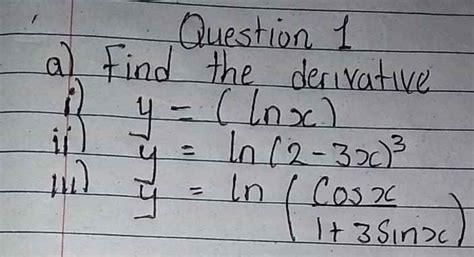 Question 1
a) Find the derivative
i) y = (ln x)
ii) y = ln(2-3x)³
iii) y = ln (Cos x / 1+3Sin x)